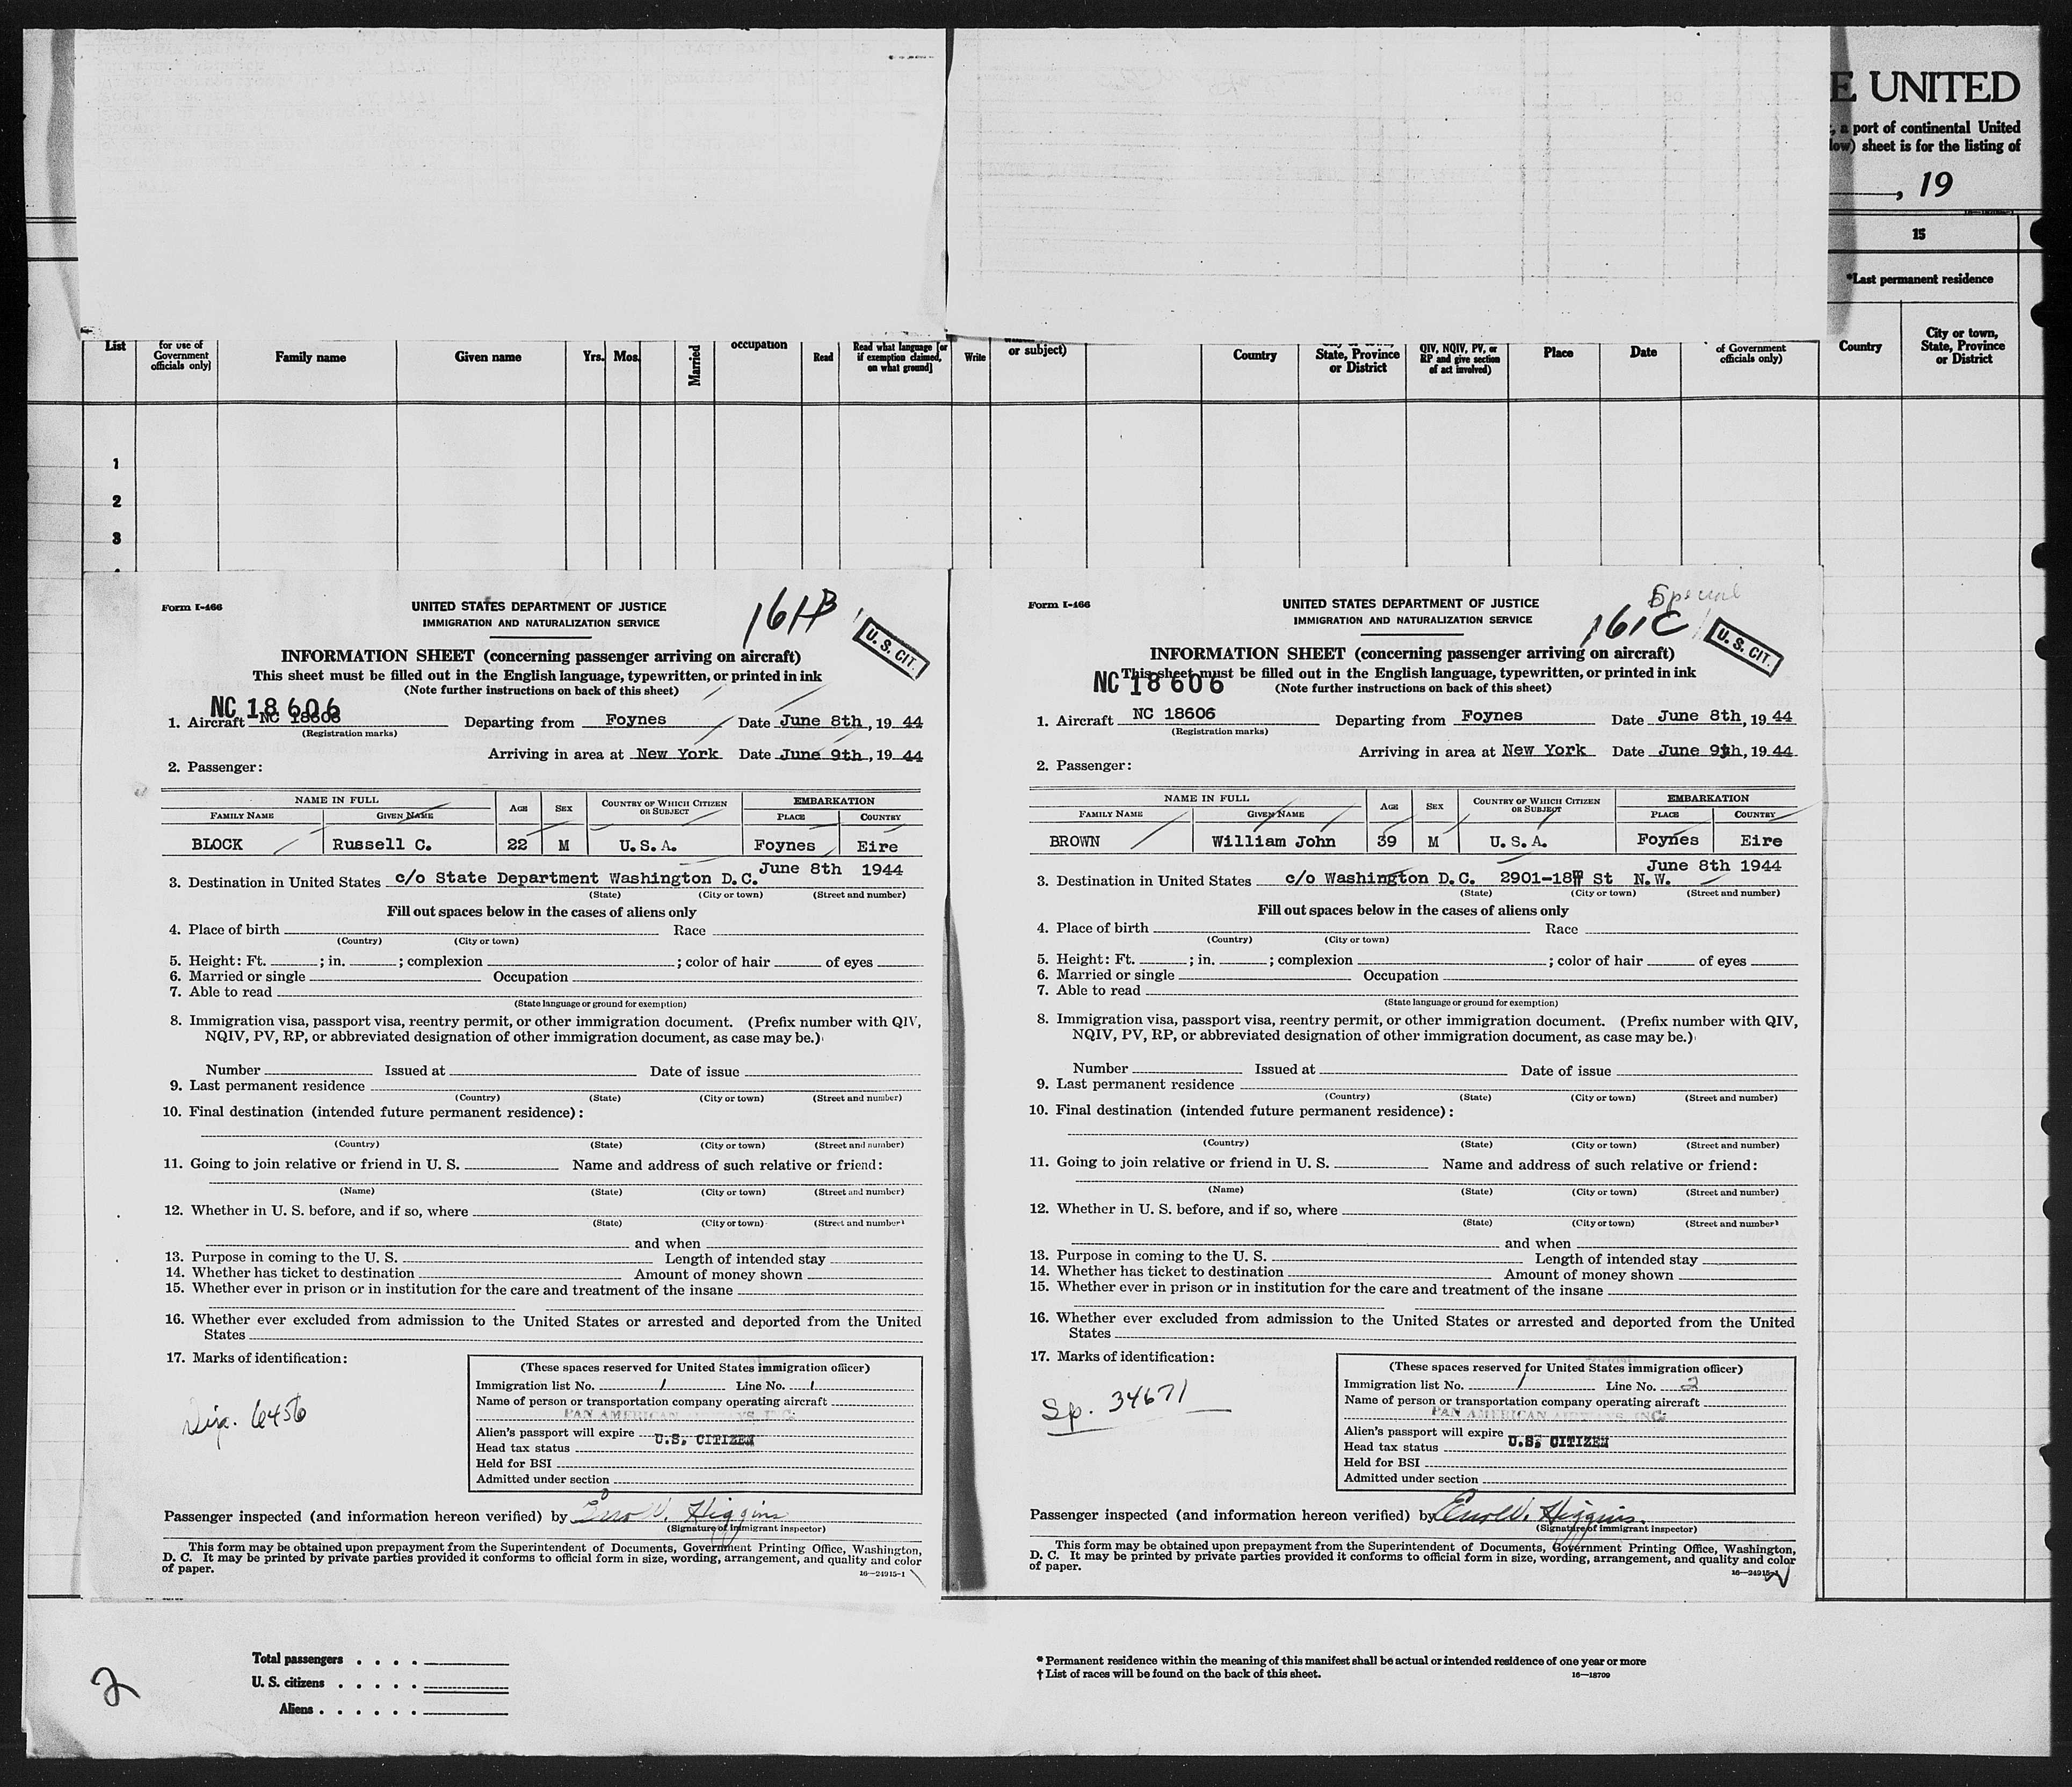 E UNITED
a port of continental United
low) sheet is for the listing of
, 19
15
*Last permanent residence
List
for use of Government officials only]
Family name
Given name
Yrs.
Mos.
Married
occupation
Read
Read what language [or if exemption claimed, on what ground]
Write
or subject)
Country
State, Province or District
QIV, NQIV, PV, or RP and give section of act involved)
Place
Date
of Government officials only)
Country
City or town, State, Province or District
1
2
3
Form I-466
161B
UNITED STATES DEPARTMENT OF JUSTICE
IMMIGRATION AND NATURALIZATION SERVICE
U. S. CIT.
INFORMATION SHEET (concerning passenger arriving on aircraft)
This sheet must be filled out in the English language, typewritten, or printed in ink
(Note further instructions on back of this sheet)
NC 18606
1. Aircraft NC 18606 Departing from Foynes Date June 8th, 19 44
(Registration marks)
Arriving in area at New York Date June 9th, 19 44
2. Passenger:
NAME IN FULL
AGE
SEX
COUNTRY OF WHICH CITIZEN OR SUBJECT
EMBARKATION
FAMILY NAME
GIVEN NAME
PLACE
COUNTRY
BLOCK Russell C. 22 M U.S.A. Foynes Eire
June 8th 1944
3. Destination in United States c/o State Department Washington D.C.
(State) (City or town) (Street and number)
Fill out spaces below in the cases of aliens only
4. Place of birth Race
(Country) (City or town)
5. Height: Ft. ; in. ; complexion ; color of hair of eyes
6. Married or single Occupation
7. Able to read
(State language or ground for exemption)
8. Immigration visa, passport visa, reentry permit, or other immigration document. (Prefix number with QIV,
NQIV, PV, RP, or abbreviated designation of other immigration document, as case may be.)
Number Issued at Date of issue
9. Last permanent residence
(Country) (State) (City or town) (Street and number)
10. Final destination (intended future permanent residence):
(Country) (State) (City or town) (Street and number)
11. Going to join relative or friend in U. S. Name and address of such relative or friend:
(Name) (State) (City or town) (Street and number)
12. Whether in U. S. before, and if so, where
(State) (City or town) (Street and number)
and when
13. Purpose in coming to the U. S. Length of intended stay
14. Whether has ticket to destination Amount of money shown
15. Whether ever in prison or in institution for the care and treatment of the insane
16. Whether ever excluded from admission to the United States or arrested and deported from the United
States
17. Marks of identification:
6456
(These spaces reserved for United States immigration officer)
Immigration list No. 1 Line No. 1
Name of person or transportation company operating aircraft
PAN AMERICAN AIRWAYS, INC.
Alien's passport will expire
U.S. CITIZEN
Head tax status
Held for BSI
Admitted under section
Passenger inspected (and information hereon verified) by Higgins
(Signature of immigrant inspector)
This form may be obtained upon prepayment from the Superintendent of Documents, Government Printing Office, Washington,
D. C. It may be printed by private parties provided it conforms to official form in size, wording, arrangement, and quality and color
of paper.
16—24915-1
Form I-466
Special
161C
UNITED STATES DEPARTMENT OF JUSTICE
IMMIGRATION AND NATURALIZATION SERVICE
U. S. CIT.
INFORMATION SHEET (concerning passenger arriving on aircraft)
This sheet must be filled out in the English language, typewritten, or printed in ink
(Note further instructions on back of this sheet)
NC 18606
1. Aircraft NC 18606 Departing from Foynes Date June 8th, 19 44
(Registration marks)
Arriving in area at New York Date June 9th, 19 44
2. Passenger:
NAME IN FULL
AGE
SEX
COUNTRY OF WHICH CITIZEN OR SUBJECT
EMBARKATION
FAMILY NAME
GIVEN NAME
PLACE
COUNTRY
BROWN William John 39 M U.S.A. Foynes Eire
June 8th 1944
3. Destination in United States c/o Washington D.C. 2901-18 St N.W.
(State) (City or town) (Street and number)
Fill out spaces below in the cases of aliens only
4. Place of birth Race
(Country) (City or town)
5. Height: Ft. ; in. ; complexion ; color of hair of eyes
6. Married or single Occupation
7. Able to read
(State language or ground for exemption)
8. Immigration visa, passport visa, reentry permit, or other immigration document. (Prefix number with QIV,
NQIV, PV, RP, or abbreviated designation of other immigration document, as case may be.)
Number Issued at Date of issue
9. Last permanent residence
(Country) (State) (City or town) (Street and number)
10. Final destination (intended future permanent residence):
(Country) (State) (City or town) (Street and number)
11. Going to join relative or friend in U. S. Name and address of such relative or friend:
(Name) (State) (City or town) (Street and number)
12. Whether in U. S. before, and if so, where
(State) (City or town) (Street and number)
and when
13. Purpose in coming to the U. S. Length of intended stay
14. Whether has ticket to destination Amount of money shown
15. Whether ever in prison or in institution for the care and treatment of the insane
16. Whether ever excluded from admission to the United States or arrested and deported from the United
States
17. Marks of identification:
Sp. 34671
(These spaces reserved for United States immigration officer)
Immigration list No. 1 Line No. 2
Name of person or transportation company operating aircraft
PAN AMERICAN AIRWAYS, INC.
Alien's passport will expire
U.S. CITIZEN
Head tax status
Held for BSI
Admitted under section
Passenger inspected (and information hereon verified) by Higgins
(Signature of immigrant inspector)
This form may be obtained upon prepayment from the Superintendent of Documents, Government Printing Office, Washington,
D. C. It may be printed by private parties provided it conforms to official form in size, wording, arrangement, and quality and color
of paper.
16—24915-1
2
Total passengers
U. S. citizens
Aliens
* Permanent residence within the meaning of this manifest shall be actual or intended residence of one year or more
† List of races will be found on the back of this sheet.
16—18709